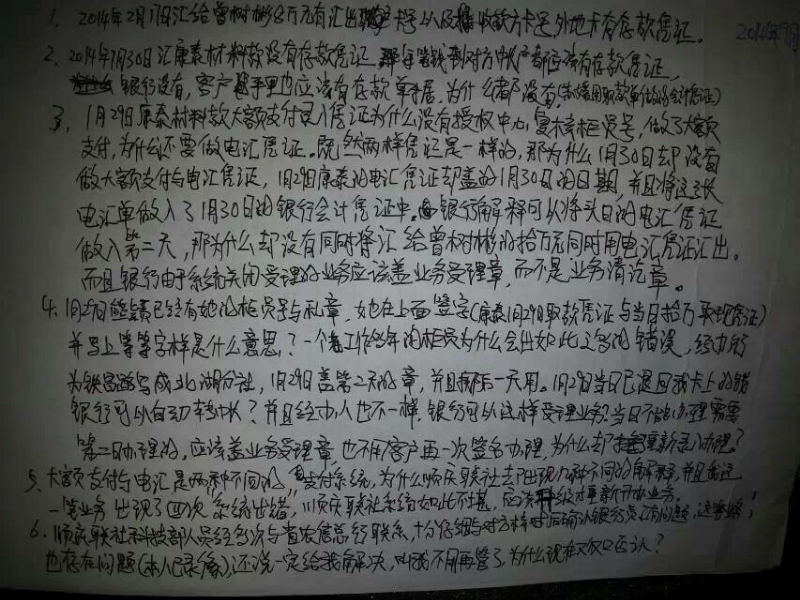 1. 2014年2月17日汇给曾树彬拾万元有汇出卡号以及收款方卡号外地卡有存款凭证。
2014年9月
2. 2014年1月30日汇康泰材料款没有存款凭证 对方帐户都应该有存款凭证,
银行没有,客户手里也应该有存款单据,为什么都没有
3. 1月29日康泰材料款大额支付录入凭证为什么没有授权中心复核柜员号,做了大额
支付,为什么还要做电汇凭证。既然两样凭证是一样的,那为什么1月30日却没有
做大额支付与电汇凭证,1月29日康泰的电汇凭证却盖的1月30日的日期,并且将这张
电汇单做入了1月30日的银行会计凭证中。银行解释可以将头日的电汇凭证
做入第二天,那为什么却没有同时将汇给曾树彬的拾万元同时用电汇凭证汇出。
而且银行由于系统关闭受理的业务应该盖业务受理章,而不是业务清讫章。
4. 1月29日熊 已经有她的柜员号与私章,她在上面签字(康泰1月29日取款凭证与当日拾万取现凭证)
并写上等等字样是什么意思?一个工作多年的柜员为什么会出如此之多的错误,经办行
为 写成北湖分社,1月29日盖第二天的章,并且 一天用。1月29日当日已退回我卡上的钱
银行可以自动转帐?并且经办人也不一样,银行可以这样受理业务?当日不能办理需要
第二日办理的,应该盖业务受理章,也不用客户再一次签名办理,为什么却重新录入办理?
5. 大额支付与电汇是两种不同的支付系统,为什么顺庆联社去出现几种不同的解释,并且
一笔业务出现了四次系统出错,顺庆联社系统如此不堪,应该升级才重新开办业务。
6. 顺庆联社科技部人员经多次与省农信总行联系,十分仔细与对方核对后确认银行员工有问题,
也存在问题(本人已录像),还说一定给我解决,叫我不用再管了,为什么现在又矢口否认?